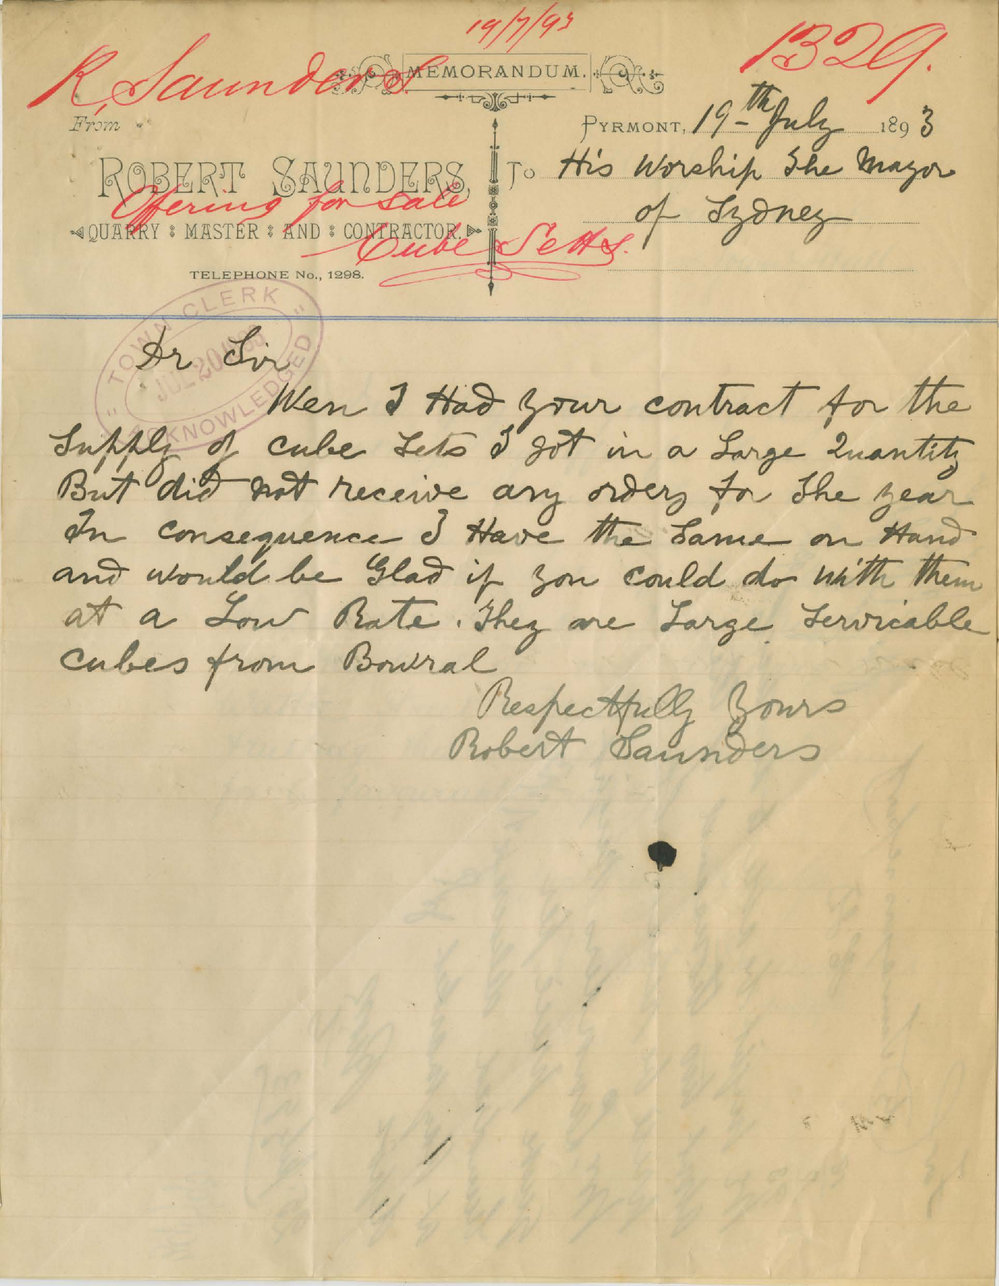 19/7/93
R, Saunders. 1329.
MEMORANDUM.
From
PYRMONT, 19th July 1893
ROBERT SAUNDERS,
To His Worship The Mayor
of Sydney
Ofering for Sale
QUARRY MASTER AND CONTRACTOR.
Cube Setts.
TELEPHONE No., 1298.
"TOWN CLERK"
JUL 20 93
ACKNOWLEDGED
Dr Sir
Wen I Had your contract for the
Supply of cube Sets I got in a Large Quantity
But did not receive any orders for the year
In consequence I Have the Same on Hand
and would be Glad if you could do with them
at a Low Rate. They are Large Servicable
cubes from Bowral
Respectfully Yours
Robert Saunders